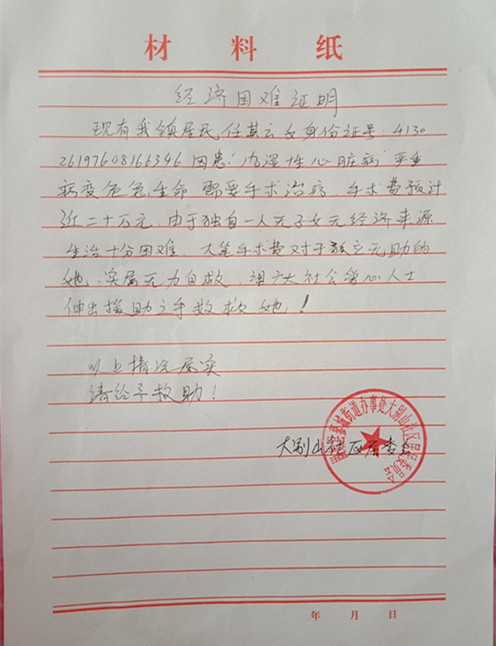 材料纸
经济困难证明
现有我镇居民任其云女身份证号:4130
26197608166346因患:"风湿性心脏病"严重
病变危急生命 需要手术治病,手术费预计
近二十万元,由于独自一人无子女无经济来源
生活十分困难,大笔手术费对于孤立无助的
她,实属无力自救,望广大社会爱心人士
伸出援助之手救救她!
以上情况属实
请给予救助!
大别山社区居委会
街道办事处大别山社区居民委员会
年 月 日